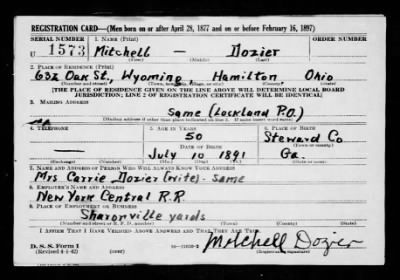 REGISTRATION CARD—(Men born on or after April 28, 1877 and on or before February 16, 1897)
SERIAL NUMBER 1. NAME (Print) ORDER NUMBER
U 1573 Mitchell — Dozier
(First) (Middle) (Last)
2. PLACE OF RESIDENCE (Print)
632 Oak St., Wyoming Hamilton Ohio
(Number and street) (Town, township, village, or city) (County) (State)
[THE PLACE OF RESIDENCE GIVEN ON THE LINE ABOVE WILL DETERMINE LOCAL BOARD
JURISDICTION; LINE 2 OF REGISTRATION CERTIFICATE WILL BE IDENTICAL]
3. MAILING ADDRESS
Same (Lockland P.O.)
[Mailing address if other than place indicated on line 2. If same insert word same]
4. TELEPHONE 5. AGE IN YEARS 6. PLACE OF BIRTH
50 Steward Co
DATE OF BIRTH
— July 10 1891 Ga.
(Exchange) (Number) (Mo.) (Day) (Yr.) (State or country)
7. NAME AND ADDRESS OF PERSON WHO WILL ALWAYS KNOW YOUR ADDRESS
Mrs Carrie Dozier (wife) - same
8. EMPLOYER'S NAME AND ADDRESS
New York Central R.R.
9. PLACE OF EMPLOYMENT OR BUSINESS
Sharonville yards
(Number and street or R. F. D. number) (Town) (County) (State)
I AFFIRM THAT I HAVE VERIFIED ABOVE ANSWERS AND THAT THEY ARE TRUE.
D. S. S. Form 1
(Revised 4-1-42) (over) Mitchell Dozier